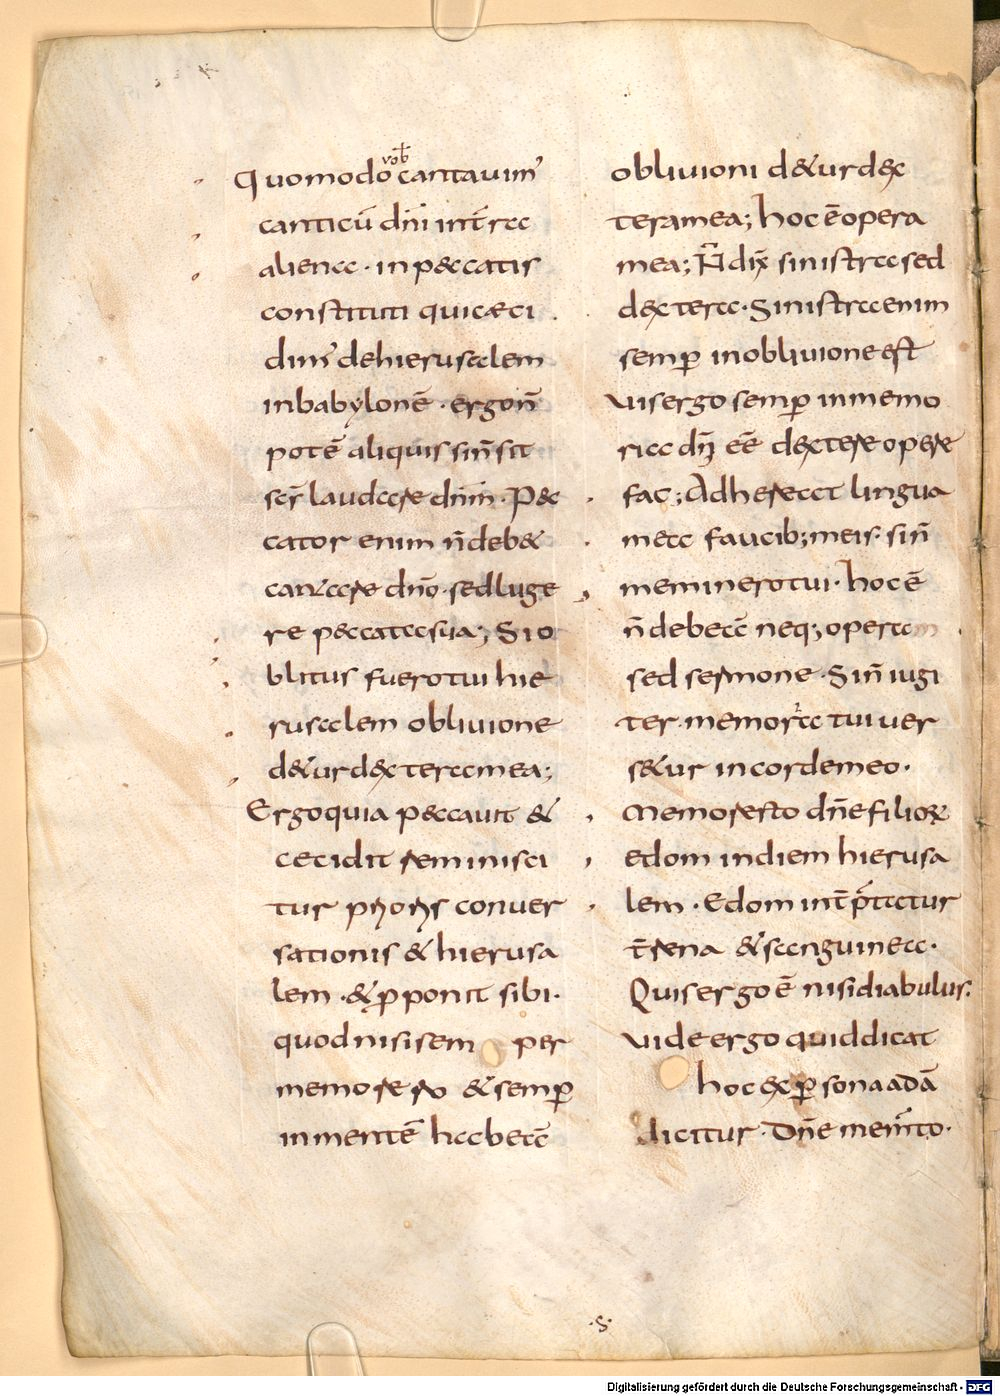 vob̄
Quomodo cantauim᾽
canticū dn̄i int̄ra
aliena · in peccatis
constituti qui cæci
dim᾽ de hierusalem
in babylonē · ergo n̄
potē aliquis si n̄ sit
scr̄ laudare dn̄m · Pec
cator enim n̄ debet
cantare dn̄o · sed luge
re peccata sua; Si o
blitus fuero tui hie
rusalem obliuione
detur dextera mea;
Ergo quia peccauit &
cecidit reminisci
tur prioris conuer
sationis & hierusa
lem · & p̱ponit sibi ·
quod nisi sem per
memorero & semp̱
in mentē habeā
obliuioni detur dex
tera mea; hoc ē opera
mea; N̄ dix̄ sinistra sed
dextera · Sinistra enim
semp̱ in obliuione est
Uis ergo semp̱ in memo
ria dī eē dextere opere
fac; Adhereat lingua
mea faucib; meis · si n̄
meminero tui · hoc ē
n̄ debeā neq; opera
sed sermone · Si n̄ iugi
ter memoria tui uer
setur in corde meo ·
Memor esto dn̄e filioꝝ
edom in diem hierusa
lem · Edom int̄p̄tatur
t̄rena & sanguinea ·
Quis ergo ē nisi diabulus.
Uide ergo quid dicat
hoc ex p̱sona adā
dicitur · Dn̄e mem̄to ·
·S·
Digitalisierung gefördert durch die Deutsche Forschungsgemeinschaft - DFG